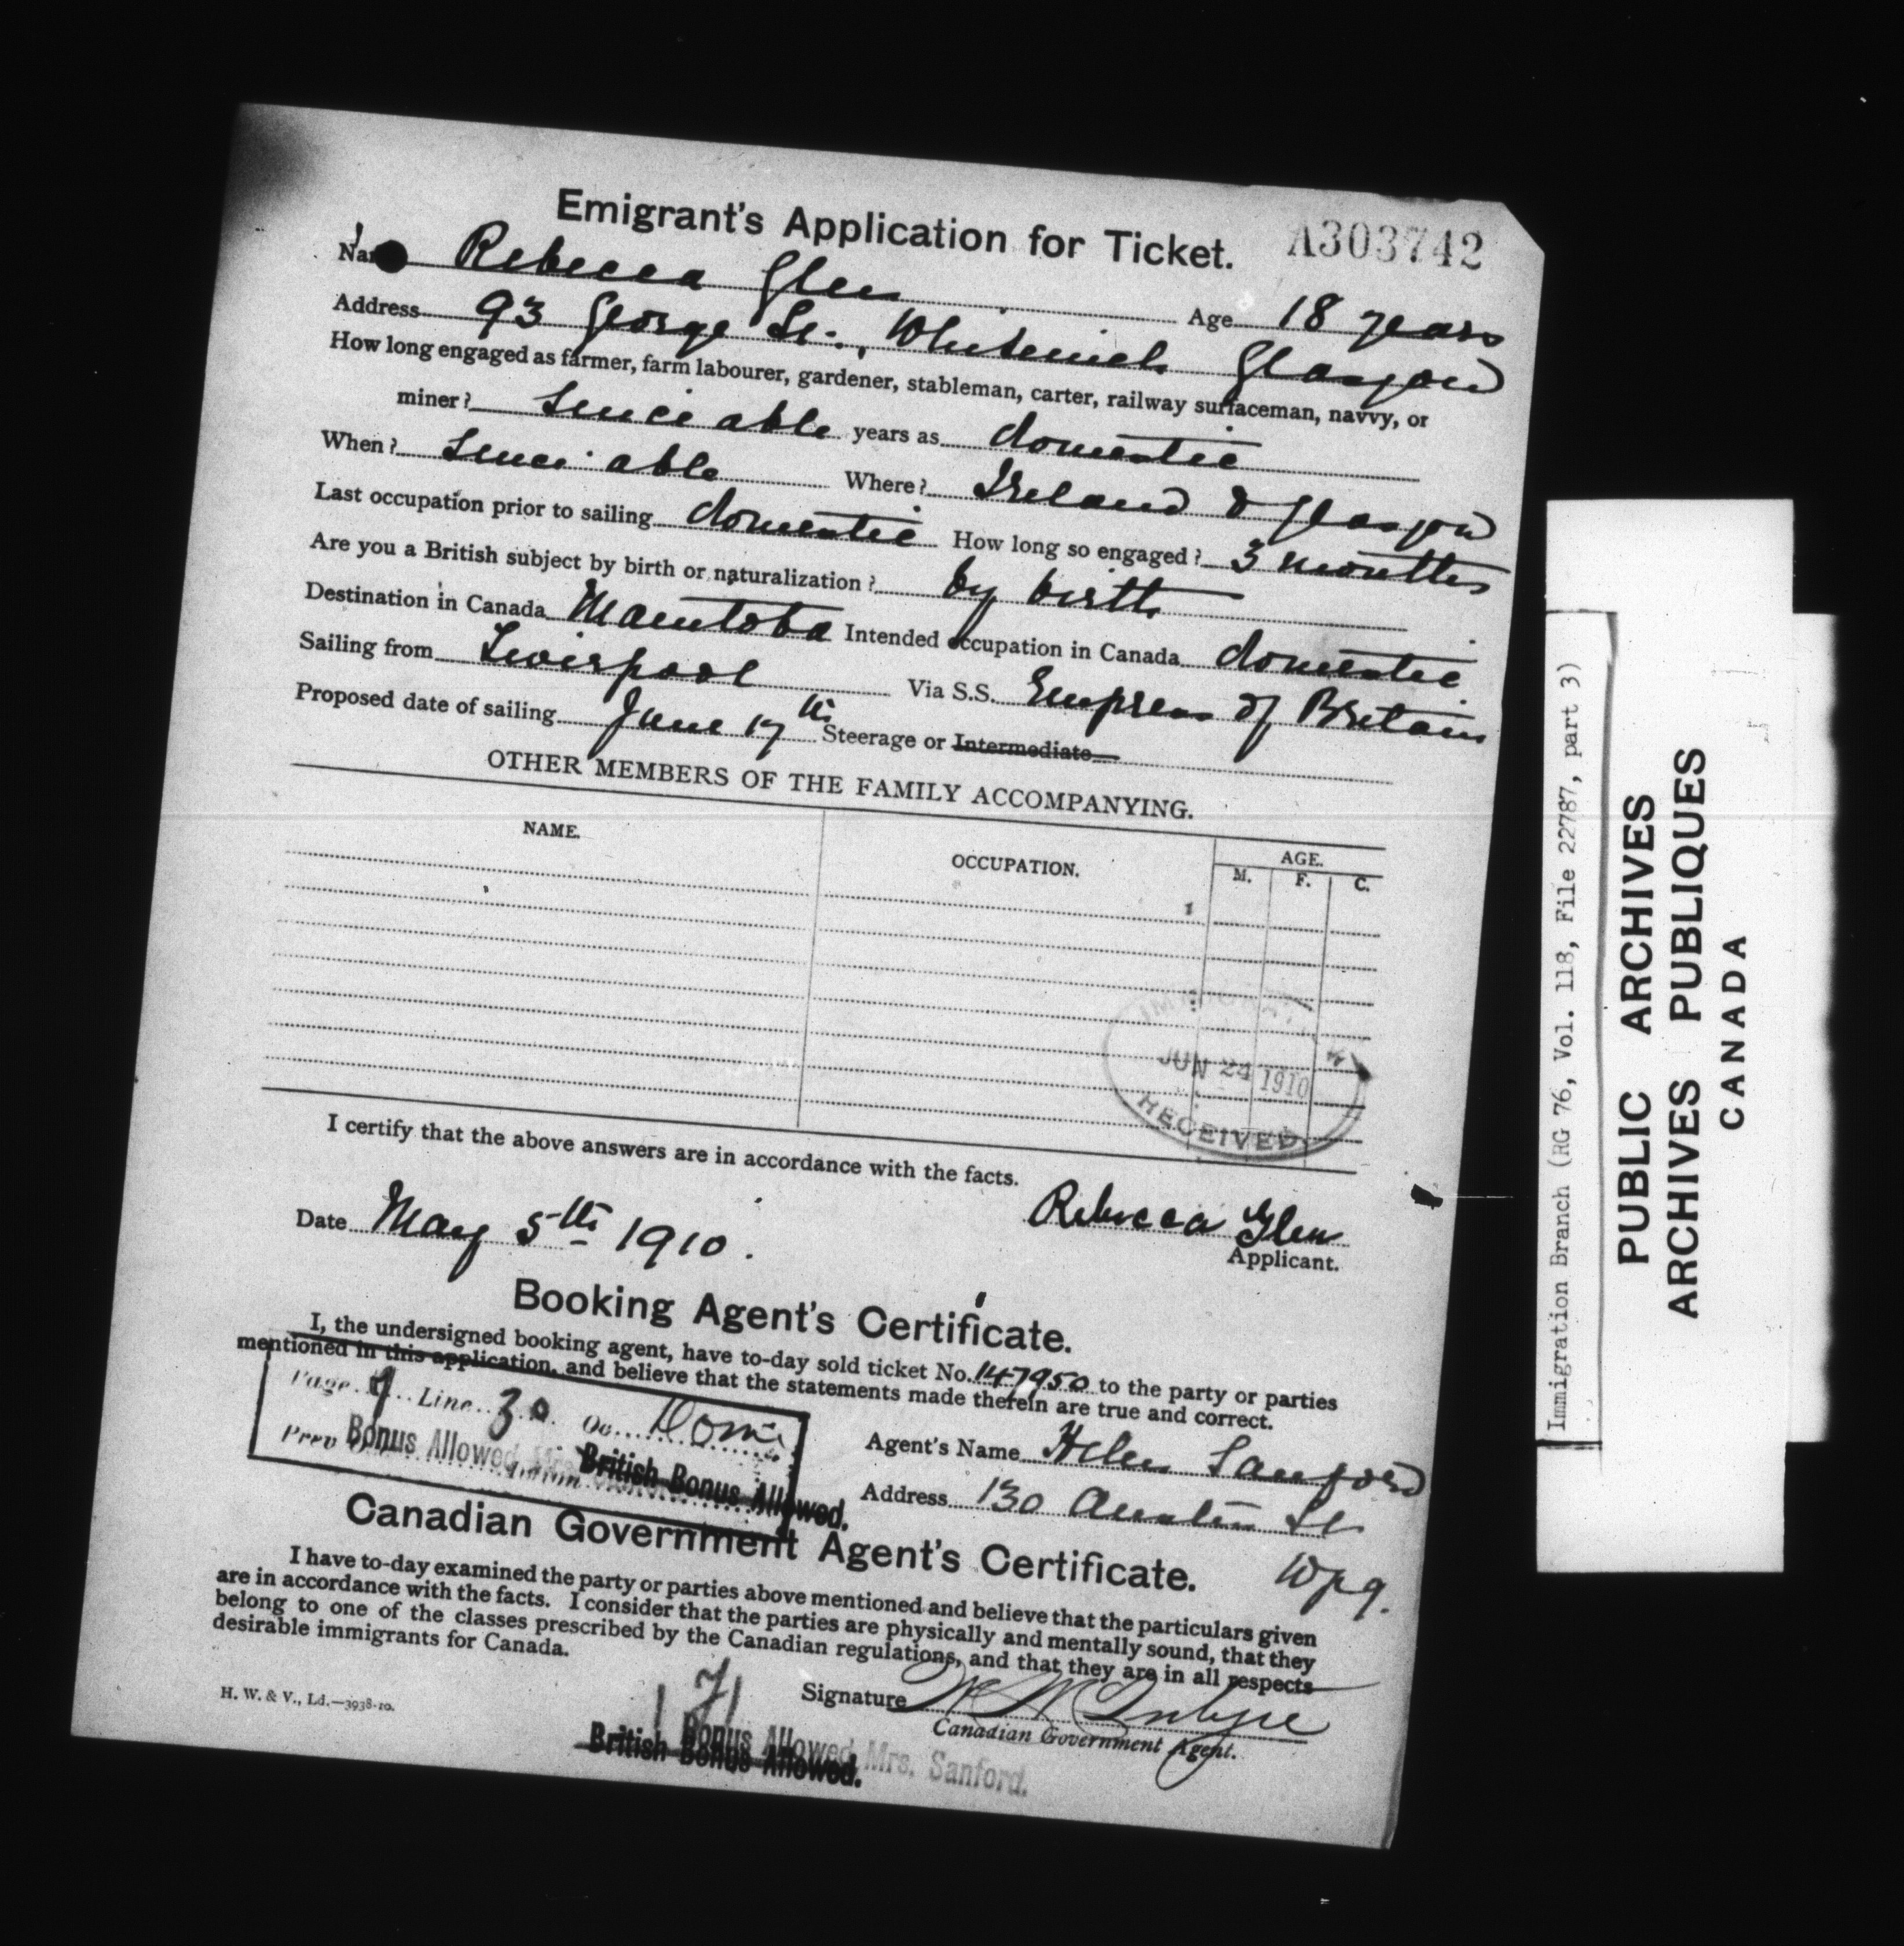 Emigrant's Application for Ticket. A303742
Name Rebecca Glen Age 18 years
Address 93 George St., Whiteinch Glasgow
How long engaged as farmer, farm labourer, gardener, stableman, carter, railway surfaceman, navvy, or
miner? Since able years as domestic
When? Since able Where? Ireland & Glasgow
Last occupation prior to sailing domestic How long so engaged? 3 months
Are you a British subject by birth or naturalization? by birth
Destination in Canada Manitoba Intended occupation in Canada domestic
Sailing from Liverpool Via S.S. Empress of Britain
Proposed date of sailing June 17th Steerage or Intermediate
OTHER MEMBERS OF THE FAMILY ACCOMPANYING.
NAME. OCCUPATION. AGE.
M. F. C.
JUN 24 1910
RECEIVED
I certify that the above answers are in accordance with the facts.
Date May 5th 1910. Rebecca Glen
Applicant.
Booking Agent's Certificate.
I, the undersigned booking agent, have to-day sold ticket No. 147950 to the party or parties
mentioned in this application, and believe that the statements made therein are true and correct.
Page Line 30 Oc Dom
Prev
Bonus Allowed Mrs.
British Bonus Allowed.
Agent's Name Helen Sanford
Address 130 Austin St
Wpg.
Canadian Government Agent's Certificate.
I have to-day examined the party or parties above mentioned and believe that the particulars given
are in accordance with the facts. I consider that the parties are physically and mentally sound, that they
belong to one of the classes prescribed by the Canadian regulations, and that they are in all respects
desirable immigrants for Canada.
Signature
Canadian Government Agent.
H. W. & V., Ld.—3938-10.
Bonus Allowed Mrs. Sanford.
British Bonus Allowed.
Immigration Branch (RG 76, Vol. 118, File 22787, part 3)
PUBLIC ARCHIVES
ARCHIVES PUBLIQUES
CANADA